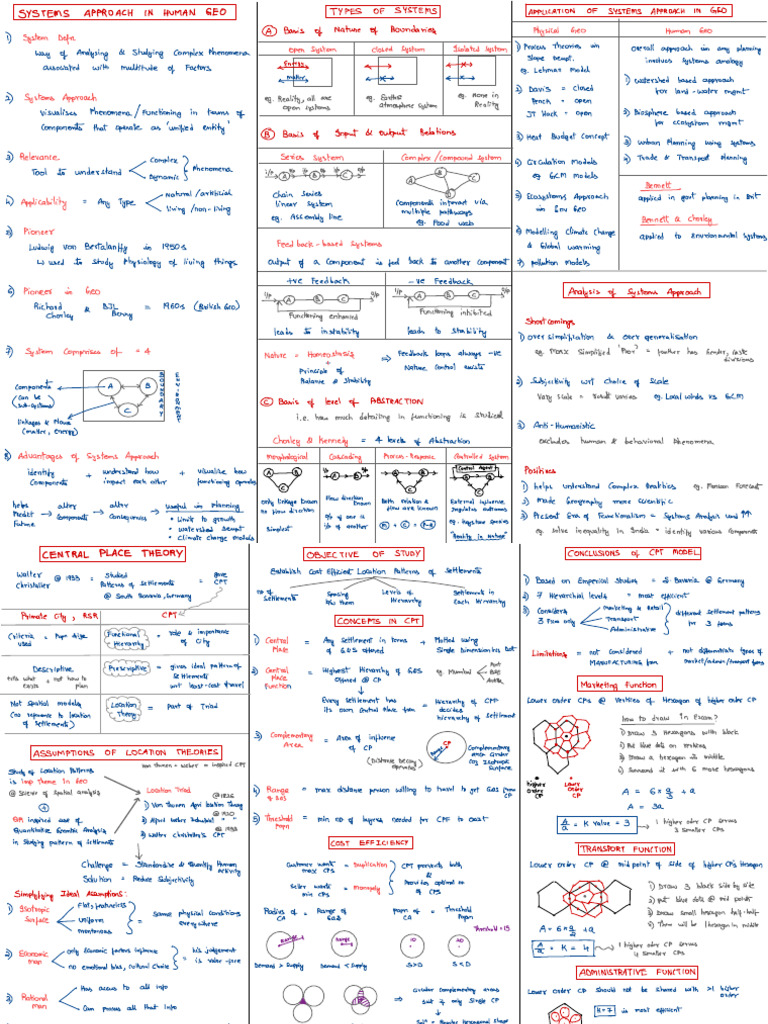 SYSTEMS APPROACH IN HUMAN GEO
1) System Defn.
Way of Analysing & Studying Complex Phenomena
associated with multitude of Factors
2) Systems Approach
Visualises Phenomena/Functioning in terms of
Components that operate as 'unified entity'
3) Relevance
Tool to understand
Complex
Dynamic
Phenomena
4) Applicability = Any Type
Natural/artificial
living/non-living
5) Pioneer
Ludwig von Bertalanffy in 1950s
↳ used to study Physiology of living things
6) Pioneer in Geo
Richard Chorley & BJL Berry = 1960s (British Geo)
7) System Comprises of = 4
Components
(can be
sub-systems)
linkages & Flows
(matter, energy)
A
B
C
8) Advantages of Systems Approach
identify Components + understand how impact each other + visualize how functioning operates
helps Predict Future → alter Components → alter Consequences → useful in Planning
• Limit to growth
• watershed
• Climate change models
TYPES OF SYSTEMS
A Basis of Nature of Boundaries
Open System
Closed System
Isolated System
Energy
matter
eg. Reality, all are open systems
eg. Earths atmosphere system
eg. None in Reality
B Basis of Input & Output Relations
Series System
Complex/Compound system
i/p A B C o/p
Chain series
linear system
eg. Assembly line
Components interact via
multiple pathways
eg. Food web
Feedback-based systems
Output of a Component is fed back to another component
+ve Feedback
-ve Feedback
Functioning enhanced
Functioning inhibited
leads to instability
leads to stability
Nature = Homeostasis
+
Principle of
Balance & Stability
⇒ Feedback loops always -ve
Nature control exists
C Basis of level of ABSTRACTION
i.e. how much detailing in functioning is studied
Chorley & Kennedy = 4 levels of Abstraction
morphological
Cascading
Process-Response
Controlled System
Control Agent
only linkages known
no flow direction
Simplest
Flow direction known
o/p of one is
i/p of another
Both relation &
flow are known
M + C = P-R
External influence
regulates outcomes
eg. Keystone species
"Reality in Nature"
APPLICATION OF SYSTEMS APPROACH IN GEO
Physical Geo
Human Geo
1) Process Theories in
Slope
eg. Lehman Model
2) Davis = closed
Penck = open
JT Hack = open
3) Heat Budget Concept
4) Circulation Models
eg GCM Models
5) Ecosystems Approach
in Env Geo
6) Modelling Climate Change
& Global warming
7) Pollution Models
Overall approach in any planning
involves systems analogy
1) Watershed based approach
for land-water mgmt
2) Biosphere based approach
for ecosystem mgmt
3) Urban Planning using systems
4) Trade & Transport planning
Bennett
applied in govt planning in Brit
Bennett & Chorley
applied to Environmental systems
Analysis of Systems Approach
Shortcomings
1) Over simplification & over generalisation
eg. Marx Simplified 'Poor' = further has Gender, caste
divisions
2) Subjectivity wrt Choice of Scale
Vary Scale = result varies eg. Local winds vs GCM
3) Anti-Humanistic
excludes human & behavioral phenomena
Positives
1) helps understand Complex Realities eg. Monsoon Forecast
2) Made Geography more Scientific
3) Present Era of Functionalism = Systems Analysis used ↑↑
eg. solve inequality in India = identify various components
CENTRAL PLACE THEORY
Walter Christaller @ 1933 = Studied
Patterns of Settlements
@ South Bavaria, Germany
= gave CPT
Primate City, RSR
CPT
Criteria used = Popn size
Functional Hierarchy = role & importance of City
Descriptive
tells what exists + not how to plan
Prescriptive = gives ideal pattern of Settlements
wrt least-cost travel
Not spatial models
(no reference to location
of settlements)
Location Theory = Part of Triad
ASSUMPTIONS OF LOCATION THEORIES
Von Thunen + Weber = inspired CPT
Study of Location Patterns
is Imp theme in Geo
@ Science of Spatial analysis
+
QR inspired use of
Quantitative Geometric Analysis
in studying pattern of settlements
Location Triad
@1826
1) Von Thunen Agri location Theory
@1909
2) Alfred Weber Industrial " "
@1933
3) Walter Christaller's CPT
Challenge = Standardise & Quantify Human activity
Solution = Reduce Subjectivity
Simplifying Ideal Assumptions:
1) Isotropic Surface
Flat, featureless
Uniform
monotonous
= same physical conditions
everywhere
2) Economic man
only Economic factors influence
no emotional bias, cultural choice
= his judgement
is value-free
3) Rational man
Has access to all info
Can process all that info
OBJECTIVE OF STUDY
Establish Cost Efficient Location Patterns of Settlements
no of Settlements
Spacing b/w them
Levels of Hierarchy
Settlement in each Hierarchy
CONCEPTS IN CPT
1) Central Place = Any Settlement in terms of G&S offered + Plotted using Single Dimension i.e. dot
2) Central Place Function = Highest Hierarchy of G&S offered @ CP eg. Mumbai
Port
Every settlement has
its own Central Place from = Hierarchy of CPF
decides
hierarchy of Settlement
3) Complementary Area = Area of influence of CP
(Distance decay operates)
CP
Complementary
area Circular
for Isotropic
Surface
4) Range of G&S = max distance person willing to travel to get G&S from CP
5) Threshold Popn = min no of buyers needed for CPF to exist
COST EFFICIENCY
Customer wants max CPs = Duplication
Seller wants min CPs = Monopoly
CPT prevents both
&
Provides optimal no
of CPs
Radius of CA = Range of G&S
popn of CA = Threshold Popn
Threshold = 15
Range
Range
10
Demand > Supply
Demand < Supply
S > D
S < D
⇒ Circular complementary areas
but if only Single CP
↓
CONCLUSIONS of CPT MODEL
1) Based on Empirical Studies = S Bavaria @ Germany
2) 7 Hierarchical levels = most efficient
3) Considers 3 Fxn only
Marketing & Retail
Transport
Administrative
different settlement patterns
for 3 forms
Limitations = not considered
MANUFACTURING fxn
+ not differentiate types of
market/admn/transport fxns
Marketing Function
Lower order CPs @ Vertices of Hexagon of higher order CP
how to draw in Exam?
1) Draw 3 Hexagons with black
2) Put blue dots on vertices
3) Draw a hexagon in middle
4) Surround it with 6 more hexagons
higher order CP
Lower order CP
A = 6 × a/3 + a
A = 3a
A/a = K value = 3
1 higher order CP serves
3 smaller CPs
TRANSPORT FUNCTION
Lower order CP @ mid point of side of higher CP's Hexagon
1) Draw 3 black side by side
2) put blue dots @ mid point
3) Draw small hexagon half-half
4) There will be 1 hexagon in middle
A = 6 × a/2 + a
A/a = K = 4
1 higher order CP serves
4 smaller CPs
ADMINISTRATIVE FUNCTION
Lower order CP should not be shared with >1 higher order CP
K = 7 is most efficient